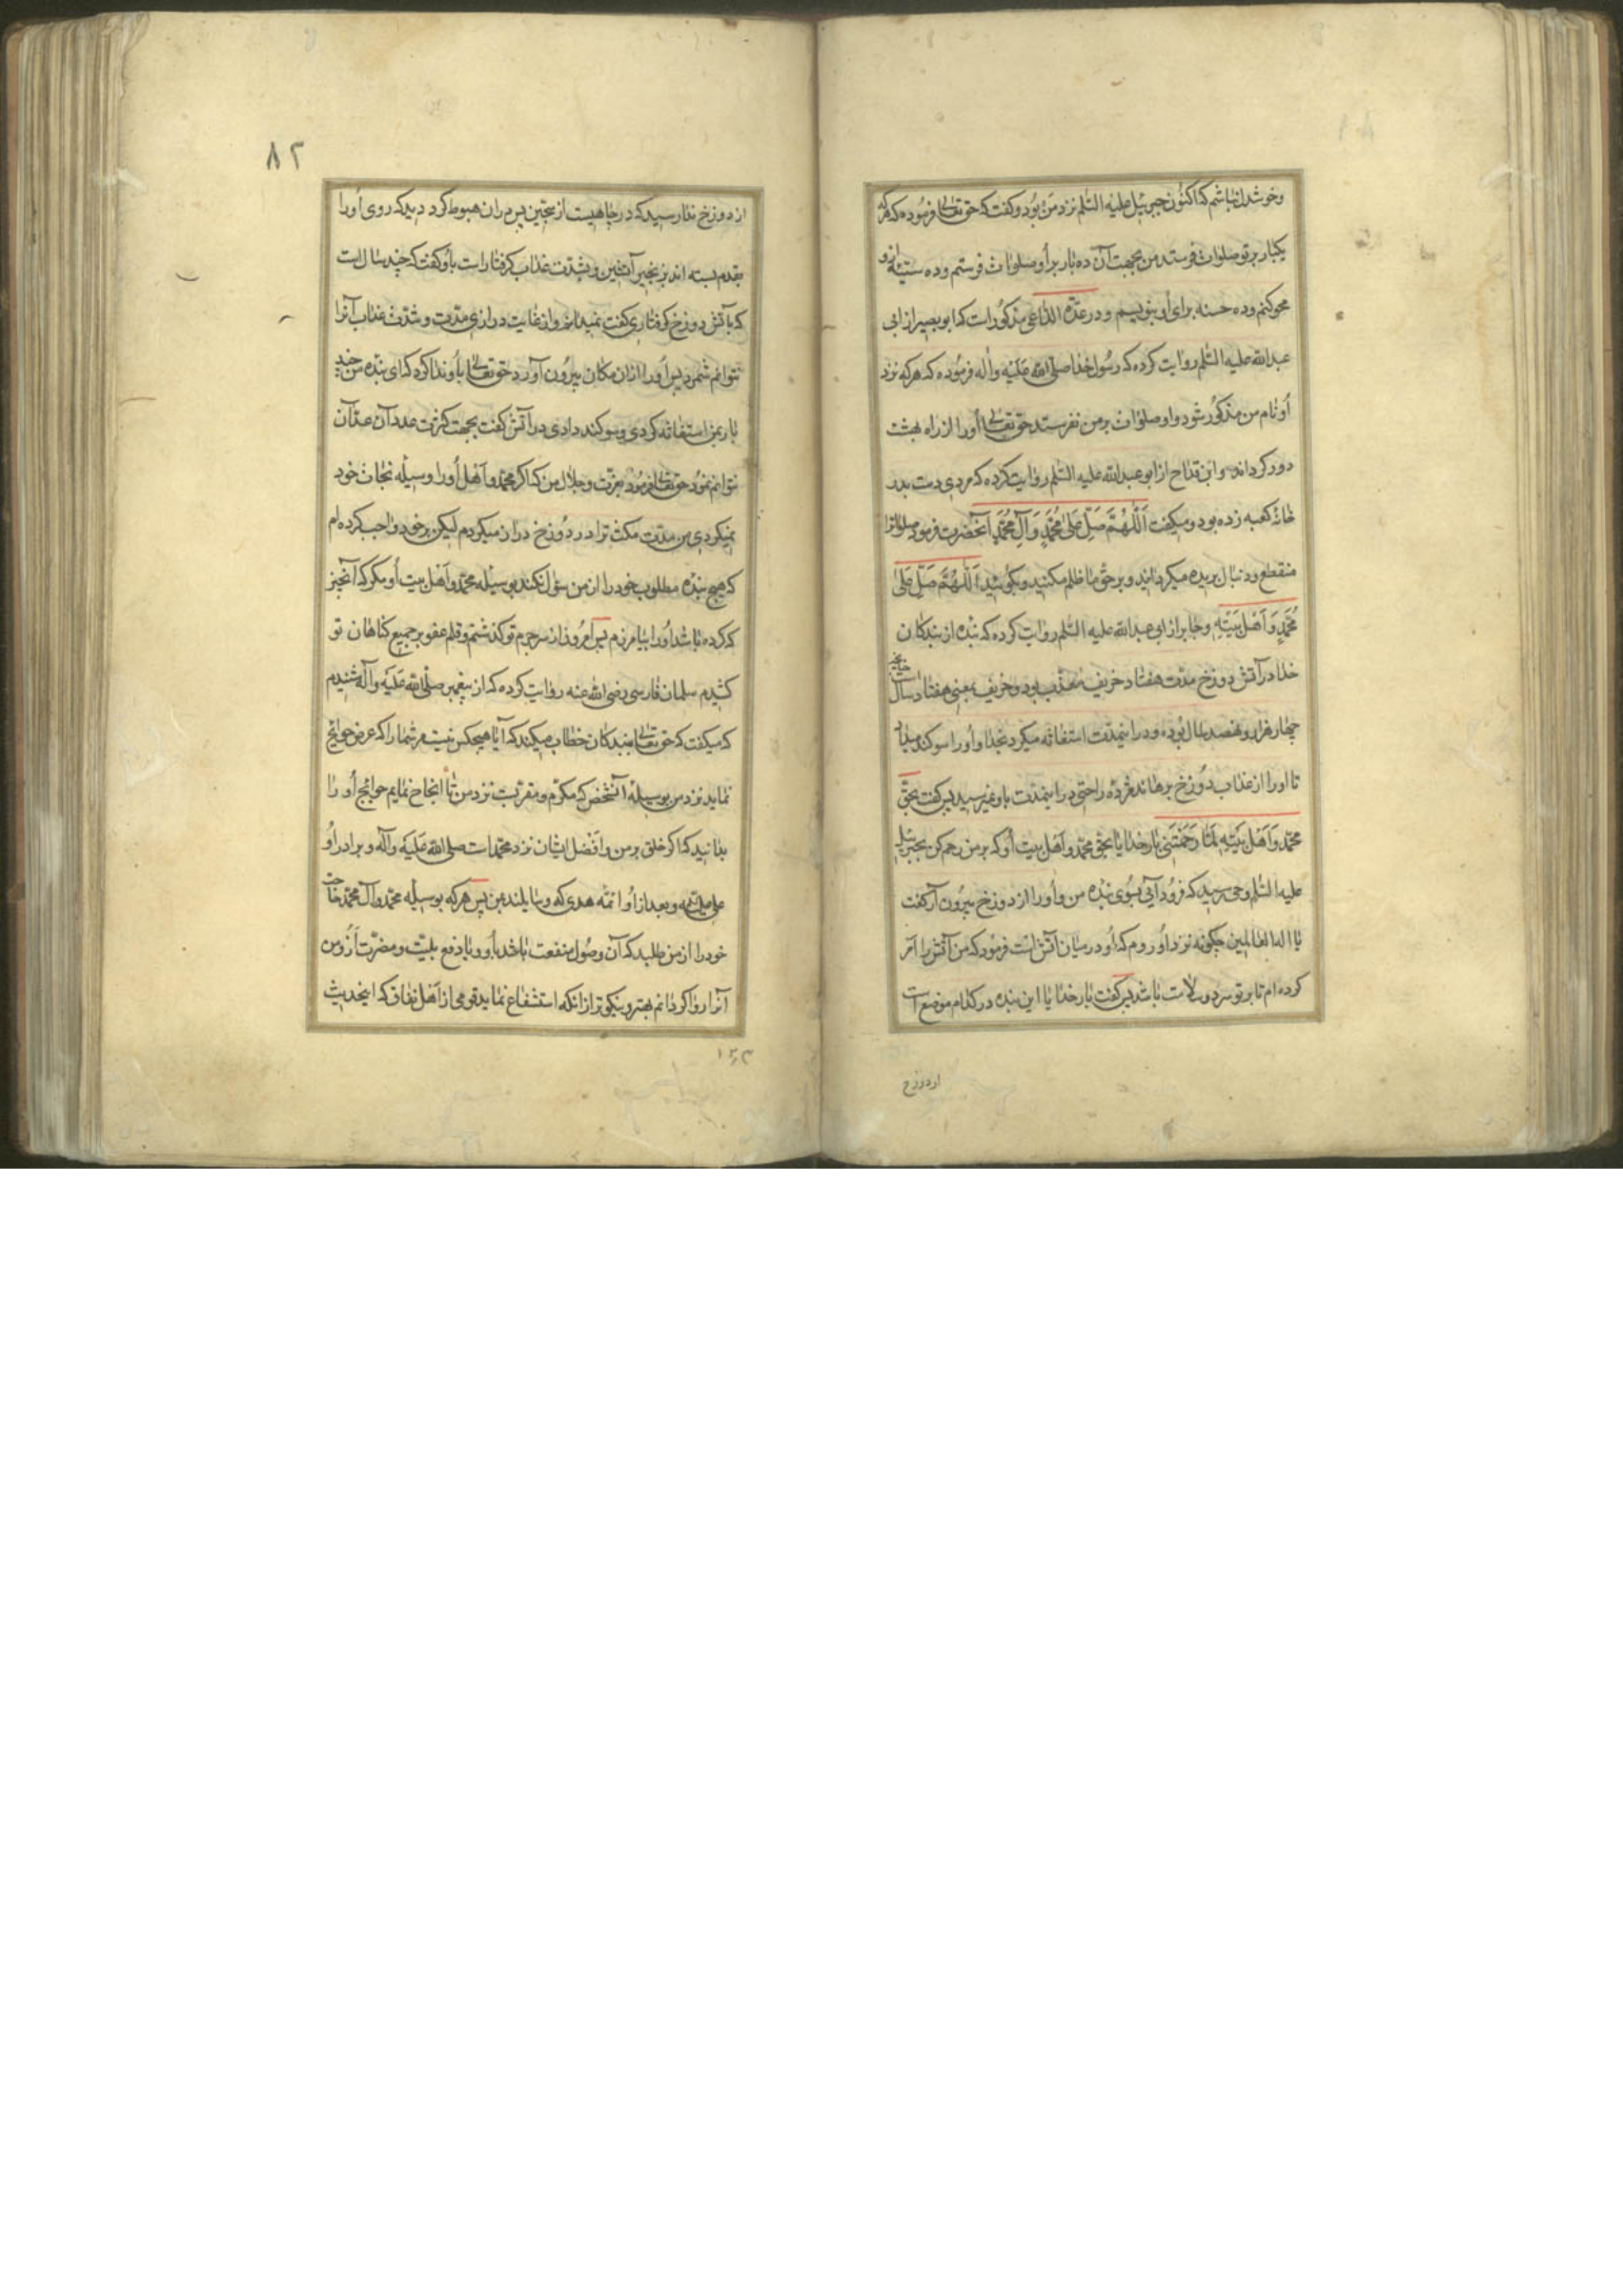 وخوشدل نباشم که اکنون جبرئیل علیه السّلم نزد من بُود وکفت که حق تعالی فرمُوده که هرکه
یکبار بر تو صلوات فرستد من بجهت آن ده بار بر اُو صلوات فرستم و ده سیّئه از و
محو کنم وده حسنه برای اُو بنویسم و در عدّة الدّاعی مذکُور است که ابو بصیر از ابی
عبدالله علیه السّلم روایت کرده که رسُول خدا صلی الله عَلَیْه واٰله فرمُوده که هرکه نزد
اُو نام من مذکُور شود واو صلوات بر من نفرستد حق تعالی اُورا از راه بهشت
دور کرداند وابن قدّاح از ابو عبدالله علیه السّلم روایت کرده که مردی دست بدر
خانه کعبه زده بود ومیکفت اَللّٰهُمَّ صَلِّ عَلیٰ مُحَمَّدٍ وَ آلِ مُحَمَّدٍ آنحضرت فرمود صلواترا
منقطع ودنبال بریده میکردانید وبر حق ما ظلم مکنید وبکوئید اَللّٰهُمَّ صَلِّ عَلیٰ
مُحَمَّدٍ وَ اَهْلِ بَیْتِهِ وجابر از ابی عبدالله علیه السّلم روایت کرده که بنده از بندکان
خدا در آتش دوزخ مدّت هفتاد خریف معذّب بود وخریف بمعنی هفتاد سال است
چهار هزار ونهصد سال بُوده ودر اینمدّت استغاثه میکرد بخدا واُورا سوکند میداد
تا اورا از عذاب دُوزخ برهاند مژدهٔ راحتی در اینمدّت باو نمیرسید پس کفت بحقّ
محمّد وَ اَهْلِ بَیْتِهِ لَمّا رَحِمْتَنی بار خدایا بحق محمّد و اهل بیت اُو که بر من رحم کن بجبرئیل
علیه السّلم وحی رسید که فرُود آیی بسُوی بنده من واُورا از دوزخ بیرُون آر کفت
یا اله العالمین چکونه نزد اُو روم که اُو در میان آتش است فرمُود که من آتش را امر
کرده ام تا بر تو سرد وسلامت باشد پس کفت بار خدایا این بنده در کدام موضع است
از دوزخ
٨٢
از دوزخ ندا رسید که در چاهیست از سجّین پس در ان هبوط کرد دید که روی اُورا
بقدم بسته اند بزنجیر آتشین وبشدّت عذاب کرفتار است باُو کفت که چند سال است
که باتش دوزخ کرفتاری کفت نمیدانم واز غایت درازی مدّت وشدّت عذاب آنرا
نتوانم شمرد پس اُورا ازان مکان بیرُون آورد حق تعالی باُو ندا کرد که ای بنده من چند
بار بمن استغاثه کردی وسوکند دادی در آتش کفت بجهت کثرت عدد آن عدّ آن
نتوانم نمُود حق تعالی فرمُود بعزّت وجلال من که اکر محمّد و اَهْل اُورا وسیله نجات خود
نمیکردی من مدّت مکث ترا در دُوزخ دراز میکردم لیکن بر خود واجب کرده ام
که هیچ بنده مطلوب خود را از من سؤل نکند بوسیله محمّد واهل بیت اُو مکر که آنچیز
که کرده باشد اُورا بیامرزم پس امرُوز از سر جرم تو کذشتم وقلم عفو بر جمیع کناهان تو
کشیدم سلمان فارسی رضی الله عنه روایت کرده که از پیغمبر صلّی الله عَلَیه وآله شنیدم
که میکفت که حق تعالی ببندکان خطاب میکند که آیا هیچکس نیست مر شما را که عرض حوایج
نماید نزد من بوسیلهٔ آنشخص که مکرّم و مقربست نزد من تا انجاح نمایم حوایج اُو را
بدانید که اکرم خلق بر من وافضل ایشان نزد من محمّد است صلی الله عَلَیْه وآله وبرادر اُو
علی علیه السلم وبعد از اُو ائمّه هدی که وسایلند بمن پس هر که بوسیله محمّد وآل محمّد حاجت
خود را از من طلبد که آن وصُول منفعت باشد باُو ویا دفع بلیّت ومضرّت اَزُو من
آنرا روا کردانم بهتر ونیکوتر از انکه استشفاع نماید قومی از اَهل نفاق که اینحدیث
١٦٣